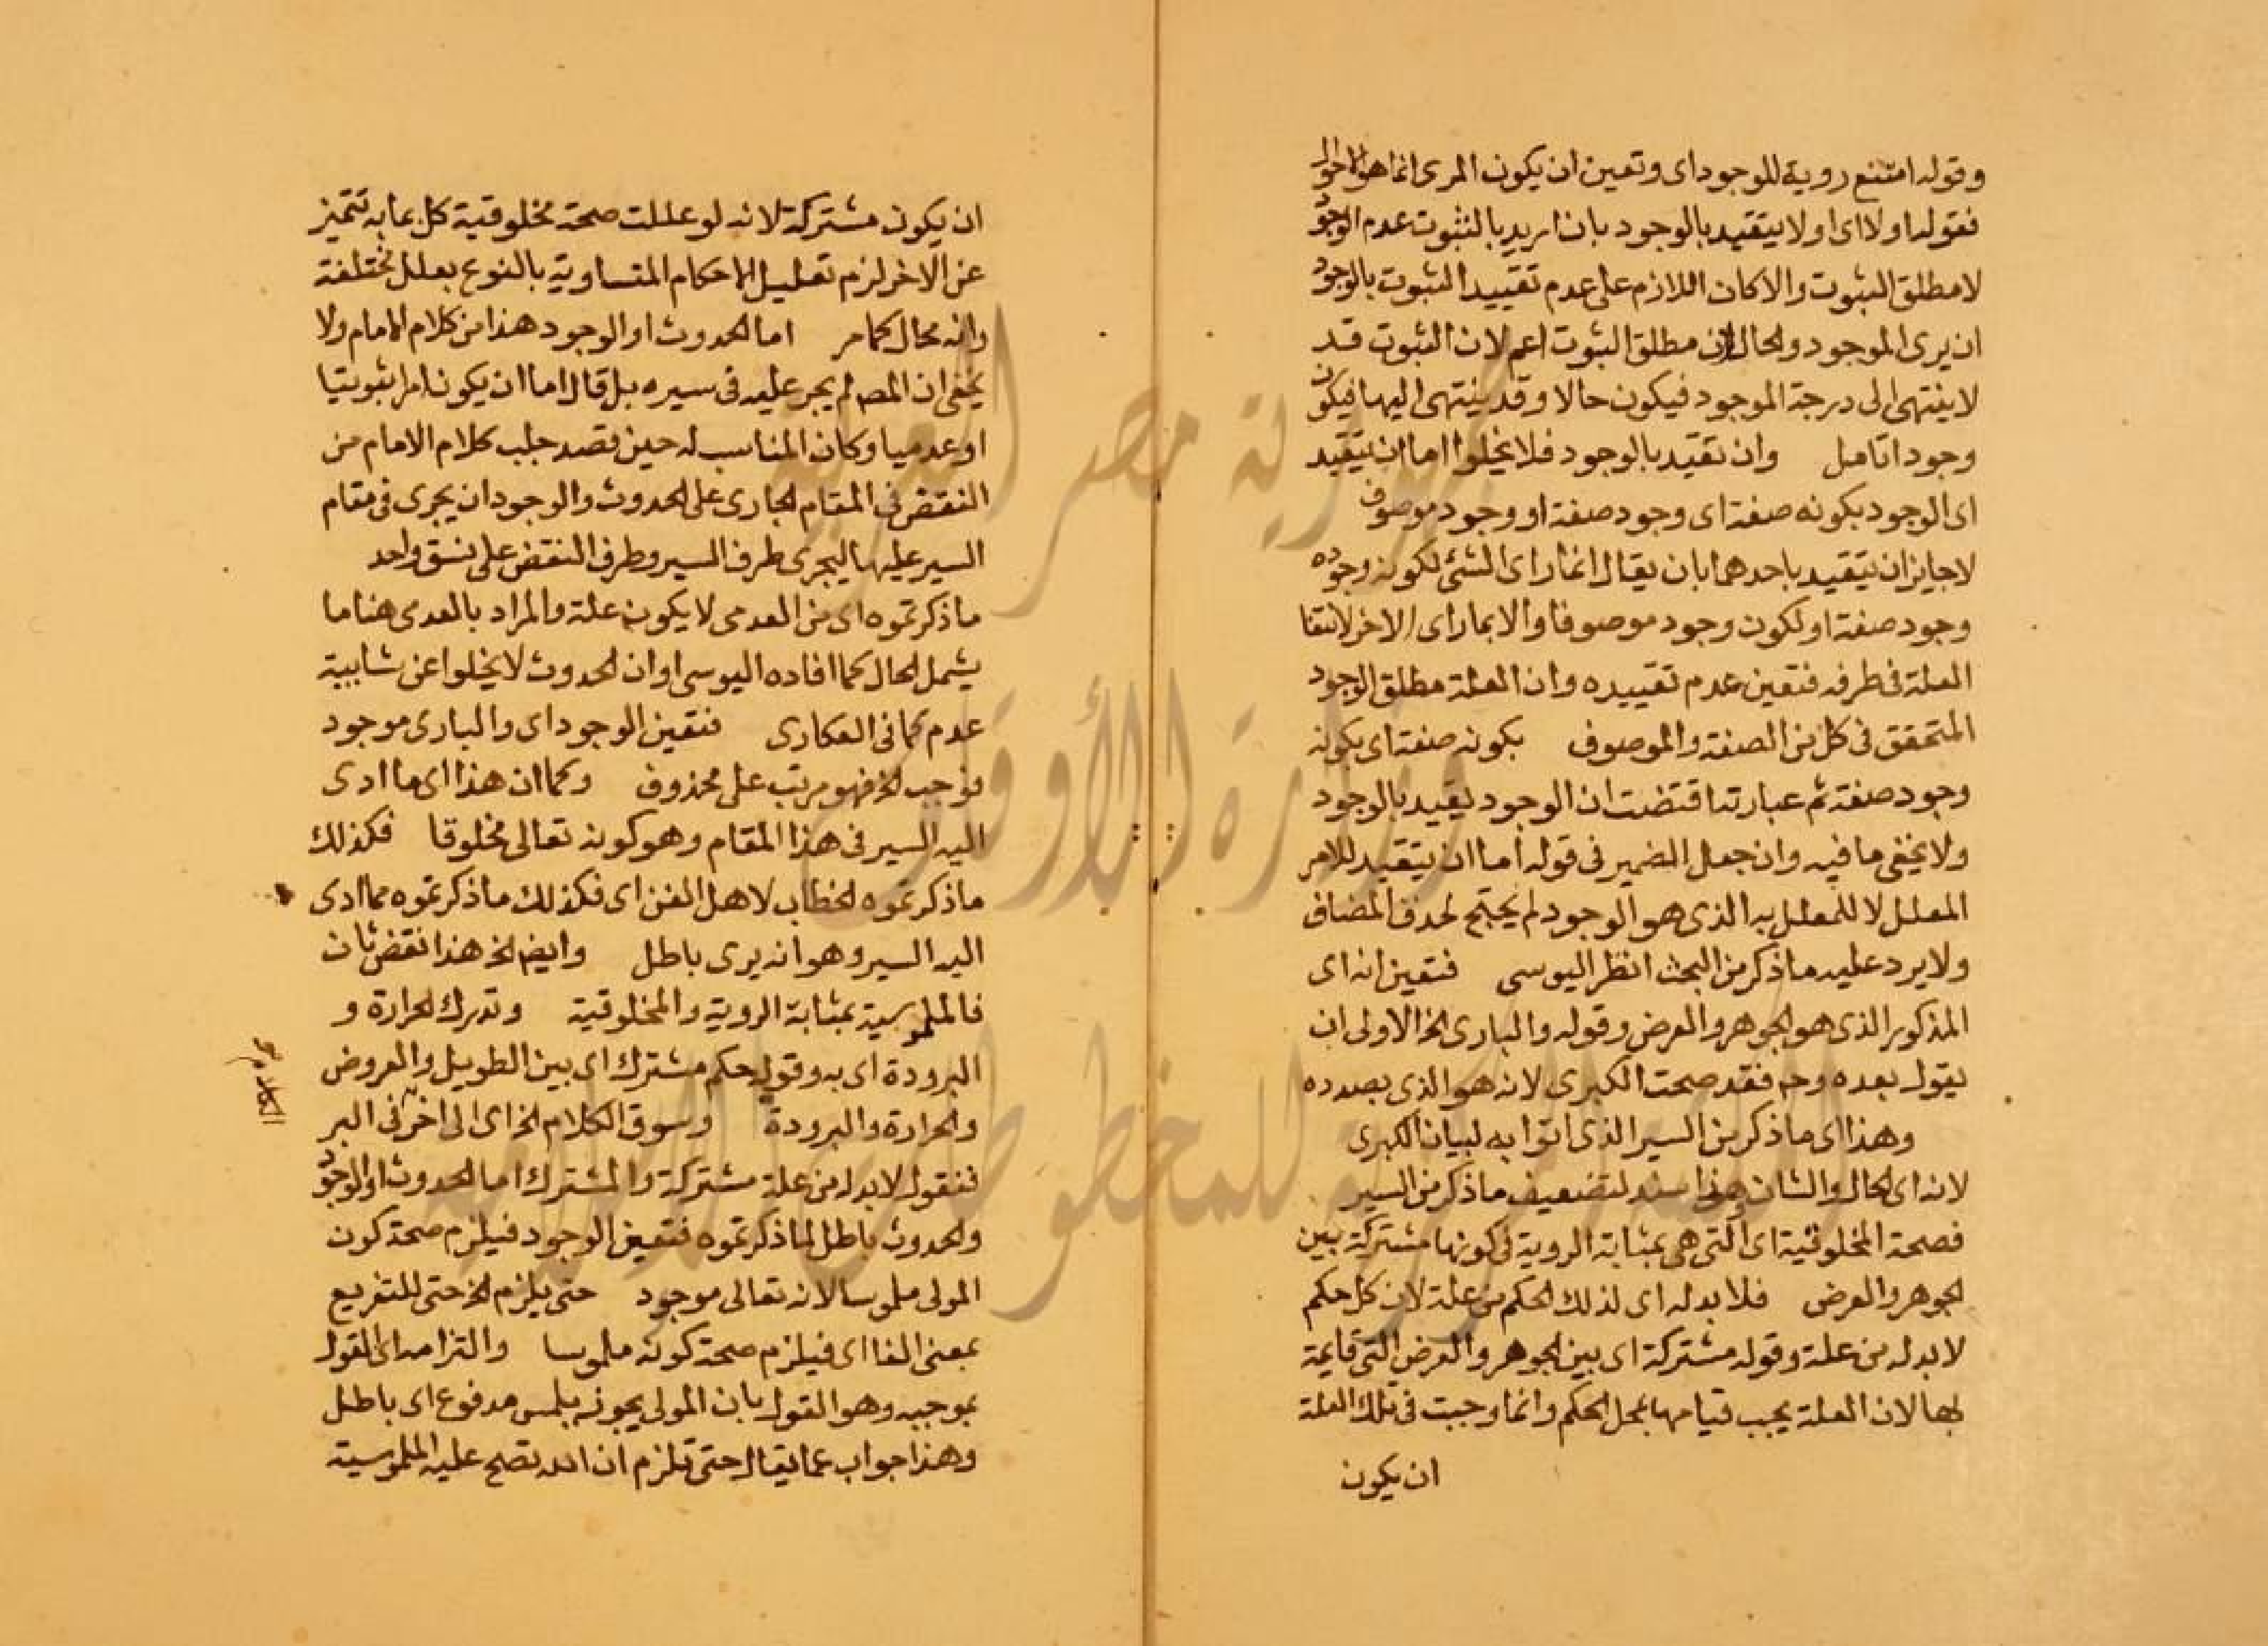 وقوله امتنع روية للموجود اى وتعين ان يكون المرى انما هو الاحوال
فقوله اولا اى اولا يتقيد بالوجود بان اريد بالثبوت عدم الوجود
لا مطلق الثبوت والا كان اللازم على عدم تقييد الثبوت بالوجود
ان يرى الموجود والحال لان مطلق الثبوت اعم لان الثبوت قد
لا ينتهى الى درجة الموجود فيكون حالا وقد ينتهى اليها فيكون
وجودا تامل وان تقيد بالوجود فلا يخلوا اما ان يتقيد
اى الوجود بكونه صفة اى وجود صفة او وجود موصوف
لا جايز ان يتقيد باحدهما بان يقال انما راى الشئ لكونه وجوده
وجود صفة او لكون وجود موصوفا والا بما راى الاخر لانتفا
العلة فى طرفه فتعين عدم تقييده وان العلة مطلق الوجود
المتحقق فى كل من الصفة والموصوف بكونه صفة اى بكونه
وجود صفة ثم عبارته اقتضت ان الوجود يقيد بالوجود
ولا يخفى ما فيه وان جعل الضمير فى قوله اما ان يتقيد للامر
المعلل لا للمعلل به الذى هو الوجود لم يحتج لحذف المضاف
ولا يرد عليه ما ذكر من البحث انظر اليوسى فتعين انه اى
المذكور الذى هو الجوهر والعرض وقوله والبارى الخ الاولى ان
يقول بعده وح فقد صحت الكبرى لانه هو الذى بصدده
وهذا اى ما ذكر من السير الذى اتوا به لبيان الكبرى
لانه اى الحال والشان وهذا سند لتضعيف ما ذكر من السير
فصحة المخلوقية اى التى هى بمثابة الروية فى كونها مشتركة بين
الجوهر والعرض فلا بد له اى لذلك الحكم من علة لان كل حكم
لا بد له من علة وقوله مشتركة اى بين الجوهر والعرض التى قايمة
بها لان العلة يجب قيامها بمحل الحكم وانما وجبت فى تلك العلة
ان يكون
ان يكون مشتركة لانه لو عللت صحة مخلوقية كل بما به تتميز
عن الاخر لزم تعليل الاحكام المتساوية بالنوع بعلل مختلفة
وانه محال كما مر اما الحدوث او الوجود هذا من كلام الامام ولا
يخفى ان المص لم يجر عليه فى سيره بل قال اما ان يكون امرا ثبوتيا
او عدميا وكان المناسب له حين قصد جلب كلام الامام من
النقض فى المقام الجارى على الحدوث والوجود ان يجرى فى مقام
السير عليها ليجرى طرف السير وطرف النقض على نسق واحد
ما ذكرتموه اى من العدمى لا يكون علة والمراد بالعدمى هنا ما
يشمل الحال كما افاده اليوسى او ان الحدوث لا يخلوا عن شايبة
عدم كما فى العكارى فتعين الوجود اى والبارى موجود
فوجب الخ فهو مرتب على محذوف وكما ان هذا اى ما ادى
اليه السير فى هذا المقام وهو كونه تعالى مخلوقا فكذلك
ما ذكرتموه الخطاب لاهل الفن اى فكذلك ما ذكرتموه مما ادى
اليه السير وهو انه يرى باطل وايض الخ هذا نقض ثان
فالملموسية بمثابة الروية والمخلوقية وتدرك الحرارة و
البرودة اى به وقوله حكم مشترك اى بين الطويل والعروض
والحرارة والبرودة وسوق الكلام الخ اى الى اخر فى البر
فنقول لا بد له من علة مشتركة والمشترك اما الحدوث او الوجود
والحدوث باطل لما ذكرتموه فتعين الوجود فيلزم صحة كون
المولى ملموسا لانه تعالى موجود حتى يلزم الخ حتى للتفريع
بمعنى الفا اى فيلزم صحة كونه ملموسا والتزامه اى القول
بموجبه وهو القول بان المولى يجوز يلمس مدفوع اى باطل
وهذا جواب عما يقال حتى تلزم ان الله تصح عليه الملموسية
جمهورية مصر العربية
وزارة الأوقاف
المكتبة المركزية للمخطوطات الإسلامية